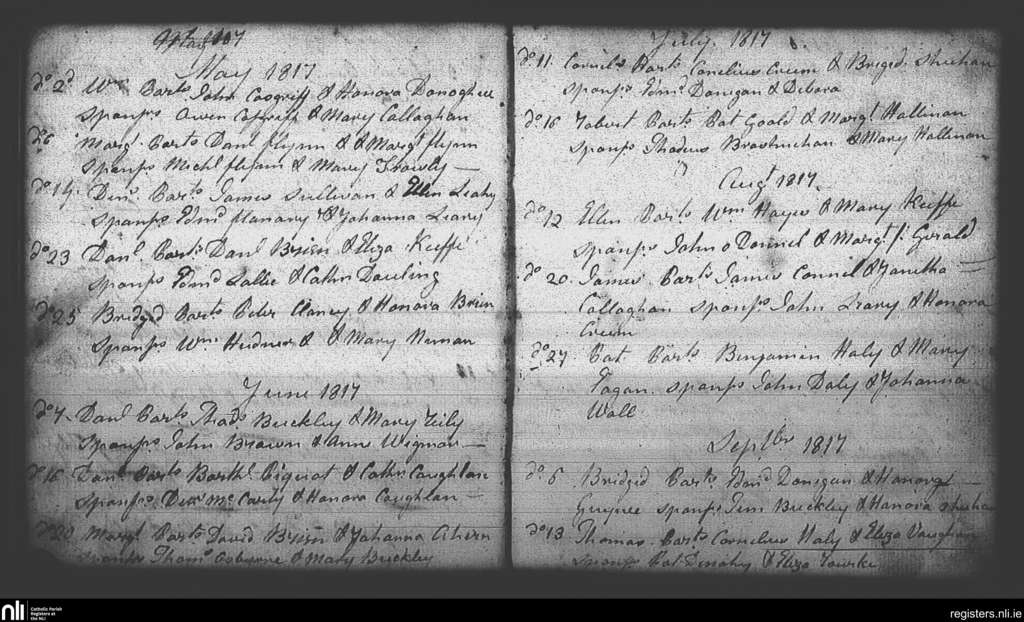 May 1817
do 2d Wm Parts John Cosgriff & Honora Donoghue
Sponsrs Owen & Mary Callaghan
do 6 Margt Parts Danl Flynn & Margt Flynn
Sponsrs Michl Flynn & Mary Frawly
do 14 Denis Parts James Sullivan & Ellen Leahy
Sponsrs Edmd & Johanna Leary
do 23 Danl Parts Danl Brien & Eliza Keeffe
Sponsrs Edmd & Cathn Dauling
do 25 Bridged Parts Peter Clancy & Honora Brien
Sponsrs Wm & Mary Nunan
June 1817
do 7 Danl Parts Thads Buckley & Mary
Sponsrs John Brown & Ann Wigmon
do 16 Danl Parts Barthl Pignot & Cathn Coughlan
Sponsrs McCarty & Honora Coughlan
do 20 Margt Parts David Brien & Johanna Ahern
Sponsrs Thoms Osburne & Mary Buckley
July 1817
do 11 Cornels Parts Cornelius Creem & Briged Sheehan
Sponsrs Edmd Donigan & Debora
do 16 Robert Parts Pat Goold & Margt Hallinan
Sponsrs Thadeus & Mary Hallinan
Augt 1817
do 12 Ellen Parts Wm Hayes & Mary Keeffe
Sponsrs John o Donnel & Margt f: Gerald
do 20 James Parts James Connel &
Callaghan Sponsrs John Leary & Honora
Creem
do 27 Pat Parts Benjamin Haly & Mary
Fagan Sponsrs John Daly & Johanna
Wall
Septbr 1817
do 5 Bridged Parts Edmd Donigan & Honora
Guynee Sponsrs Jim Buckley & Honora Sheehan
do 13 Thomas Parts Cornelius Haly & Eliza Vaughan
Sponsrs Pat Dinahy & Eliza
nli
Catholic Parish
Registers at
the NLI
registers.nli.ie